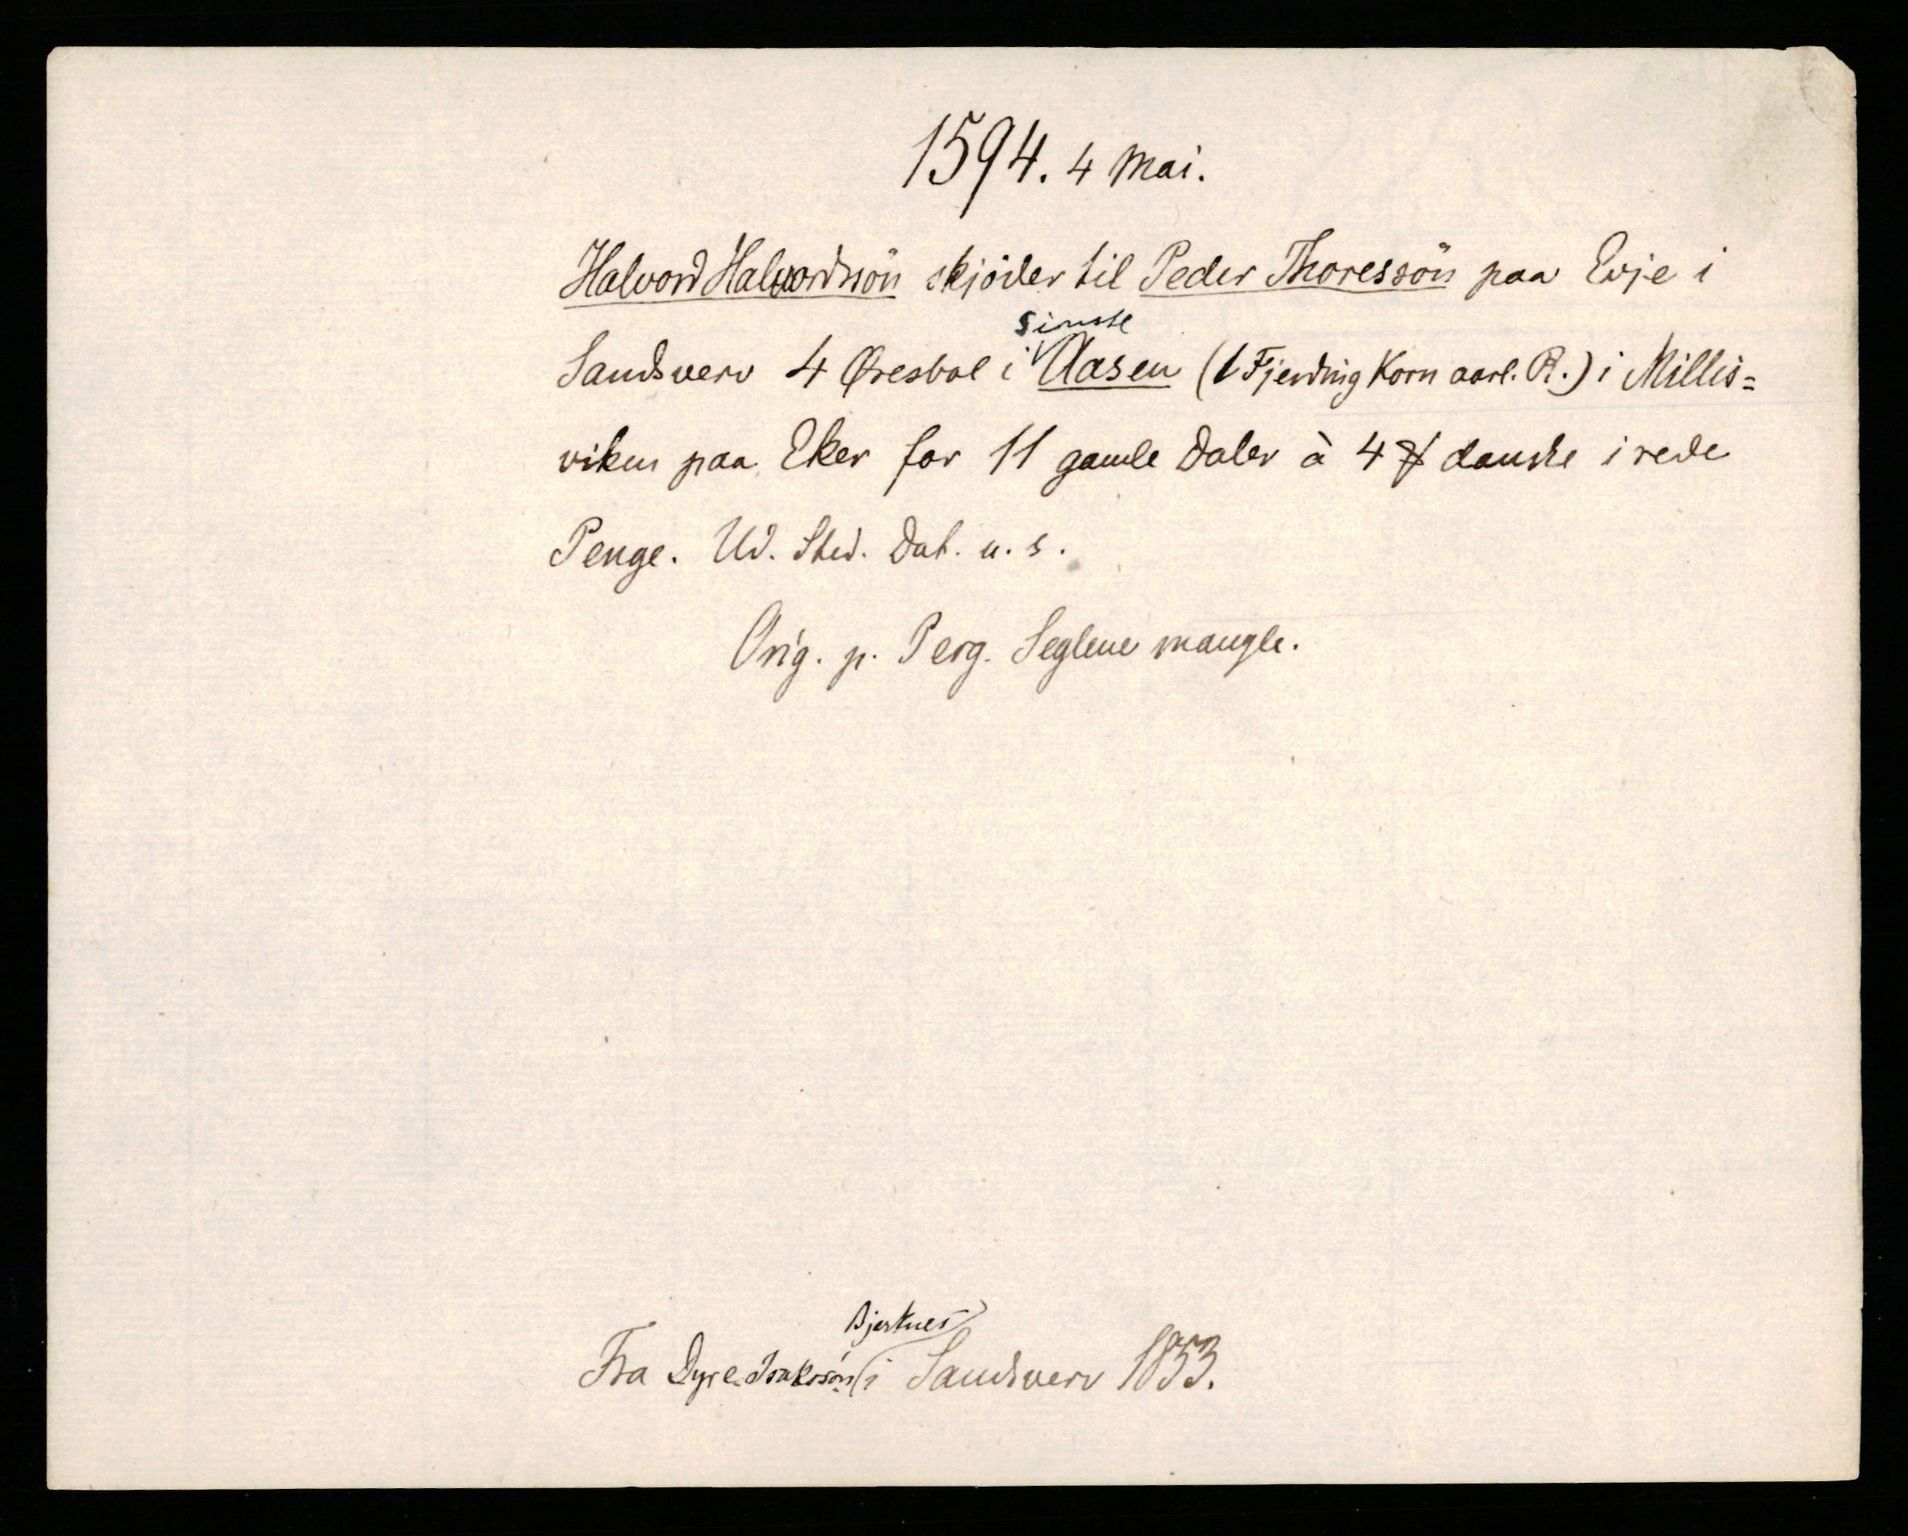 1594. 4 Mai.
Halvord Halvordssön skjöder til Peder Thoressön paa Evje i
simste
Sandsverv 4 Øresbol i Aasen (1 Fjerding Korn aarl. R.) i Millis=
viken paa Eker for 11 gamle Daler à 4 ꝸ danske i rede
Penge. Ud. Sted. Dat. u. s.
Orig. p. Perg. Seglene mangle.
Bjerknes
Fra Dyre Isakssön i Sandsverv 1853.